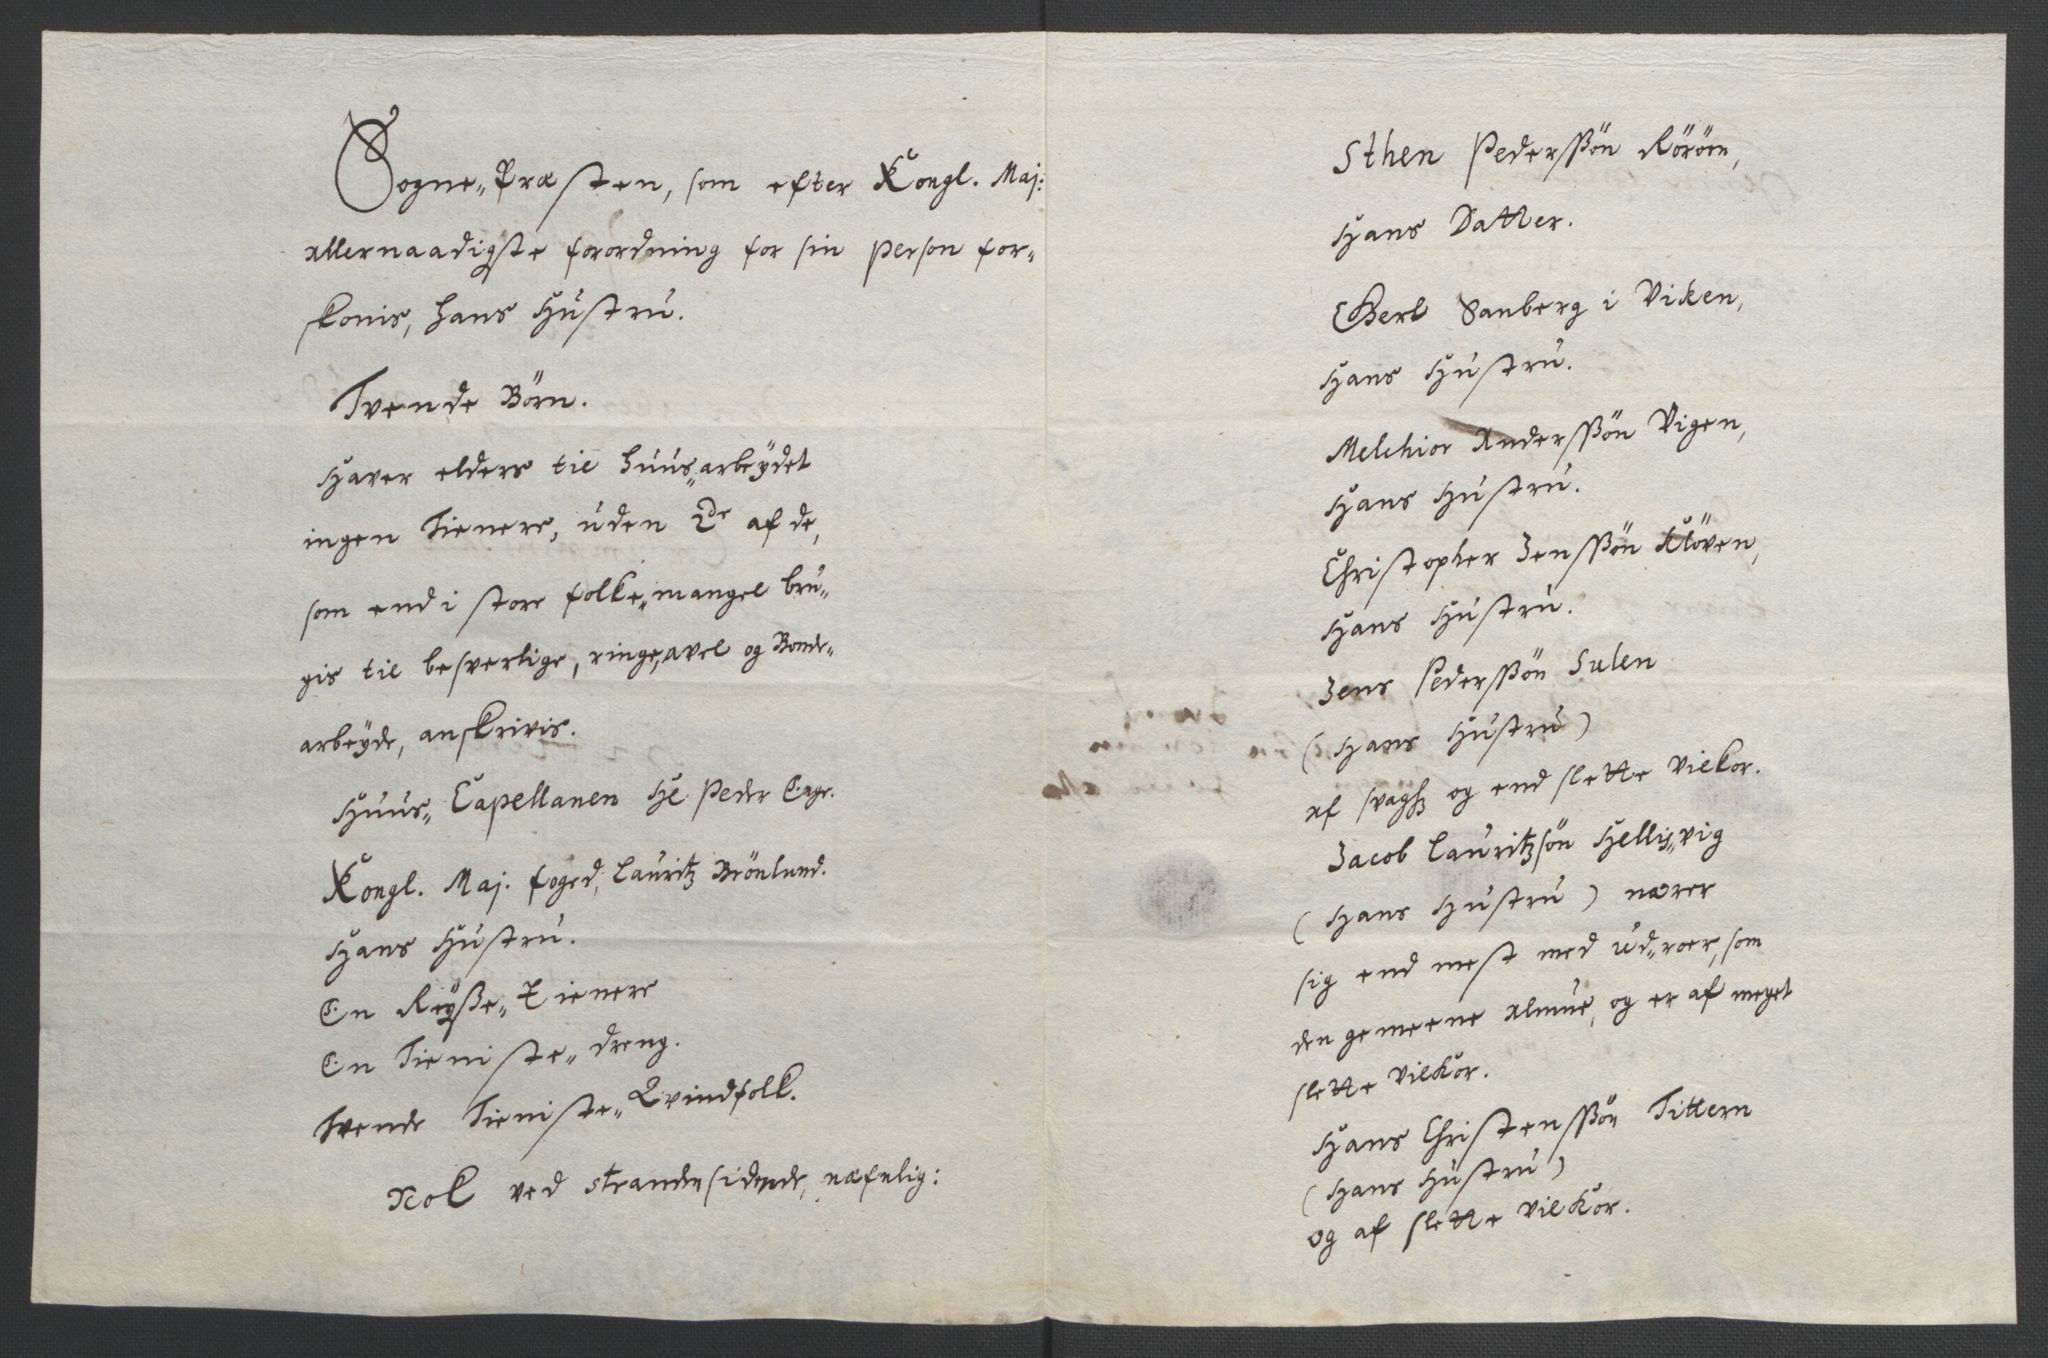 Sogne„Præsten, som efter Kongl. Maj:
allernaadigste forordning for sin person for„
skonis, hans Hústrú.
Tvende Börn.
Haver elders til húús„arbeÿdet
ingen Tienere, úden 2de af de,
som end i store folke„mangel brú„
gis til besverlige, ringe„avel og Bonde„
arbeÿde, anskrivis.
Húús„ Capellanen Hr Peder
Kongl. Maj. foged, Lauritz Brönlund.
Hans Hústrú.
En Reÿsse„Tienere
En Tieniste„ dreng.
Tvende Tieniste„Qvindfolk.
Nok ved strandensidende, nafnlig:
Sthen Pederssön Röröen,
Hans Datter.
Gert Sanberg i Viken,
Hans Hústrú.
Melchior Anderssön Vigen,
Hans Hústrú.
Christopher Jenssön Klöven,
Hans Hústrú.
Jens Pederssön Sulen
(Hans Hústrú)
af svagh og end slette vilkor.
Jacob Lauritzsön Hellis„vig
(Hans Hústrú) nærer
sig end mest med úd„roer, som
den gemeene almúe, og er af meget
slette vilkor.
Hans Christenssön Tittern
(Hans Hústrú)
og af slette vilkor.